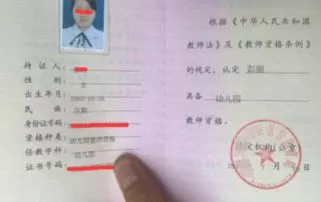 持 证 人:
性 别: 女
出生年月:
民 族: 汉族
身份证号码:
资格种类: 幼儿园教师资格
任教学科: 幼儿园
证书号码:
根据《中华人民共和国
教师法》及《教师资格条例》
的规定，认定
具备 幼儿园
教师资格。
机构(公章)